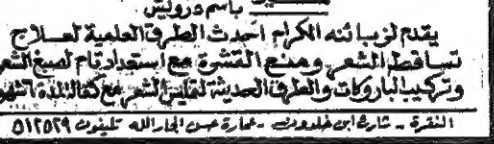 باسم دروليش
يقدم لزبائنه الكرام احدث الطرق العلمية لعـلاج
تساقط الشعر ومنع القشرة مع استعداد تام لصبغ الشعر
وتركيب الباروكات والطرق الحديثة لتمليس الشعر مع كفالة لمدة ٦ شهور
النقرة - شارع ابن خلدون - عمارة حسن الجارالله تليفون ٥١٢٥٢٩